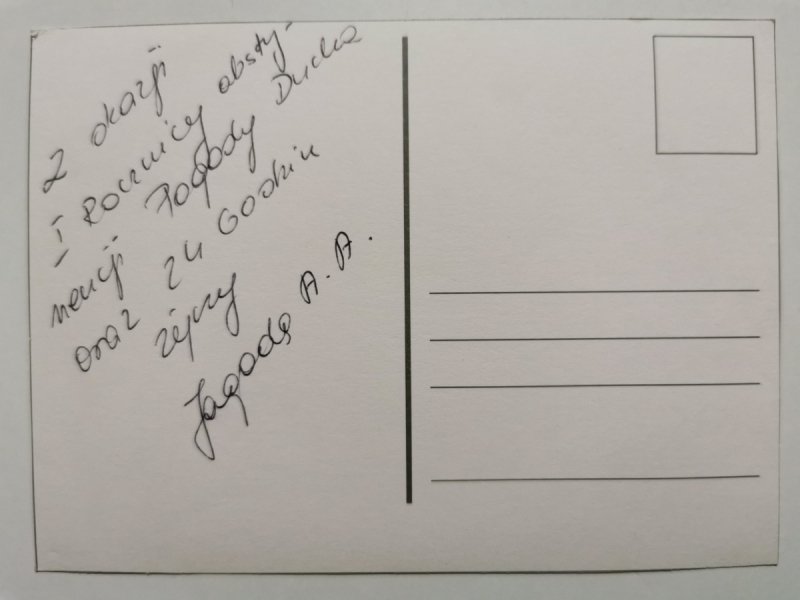 Z okazji
I Rocznicy absty-
nencji Pogody Ducha
oraz 24 Godzin
życzy
Jagoda A.A.